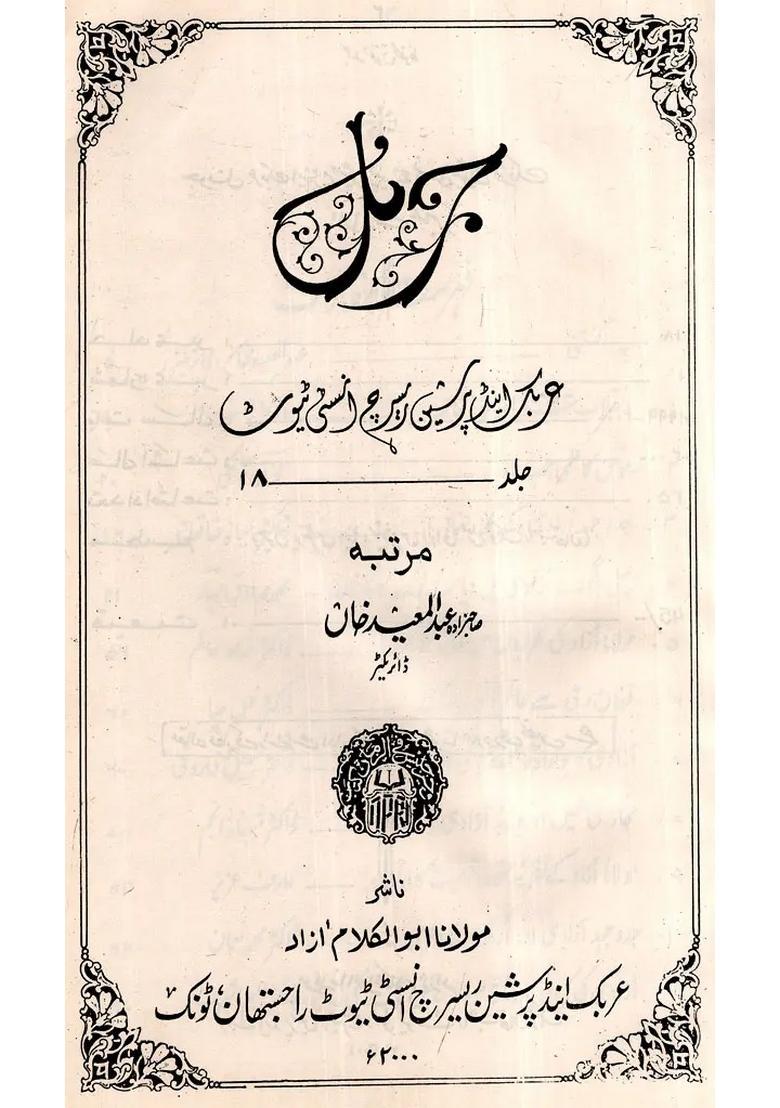 جرنل
عربک اینڈ پرشین ریسرچ انسٹی ٹیوٹ
جلد ــــــــــــ ۱۸
مرتبہ
صاحبزادہ عبدالمعید خاں
ڈائریکٹر
ناشر
مولانا ابوالکلام آزاد
عربک اینڈ پرشین ریسرچ انسٹی ٹیوٹ راجستھان، ٹونک
۲۰۰۰ء